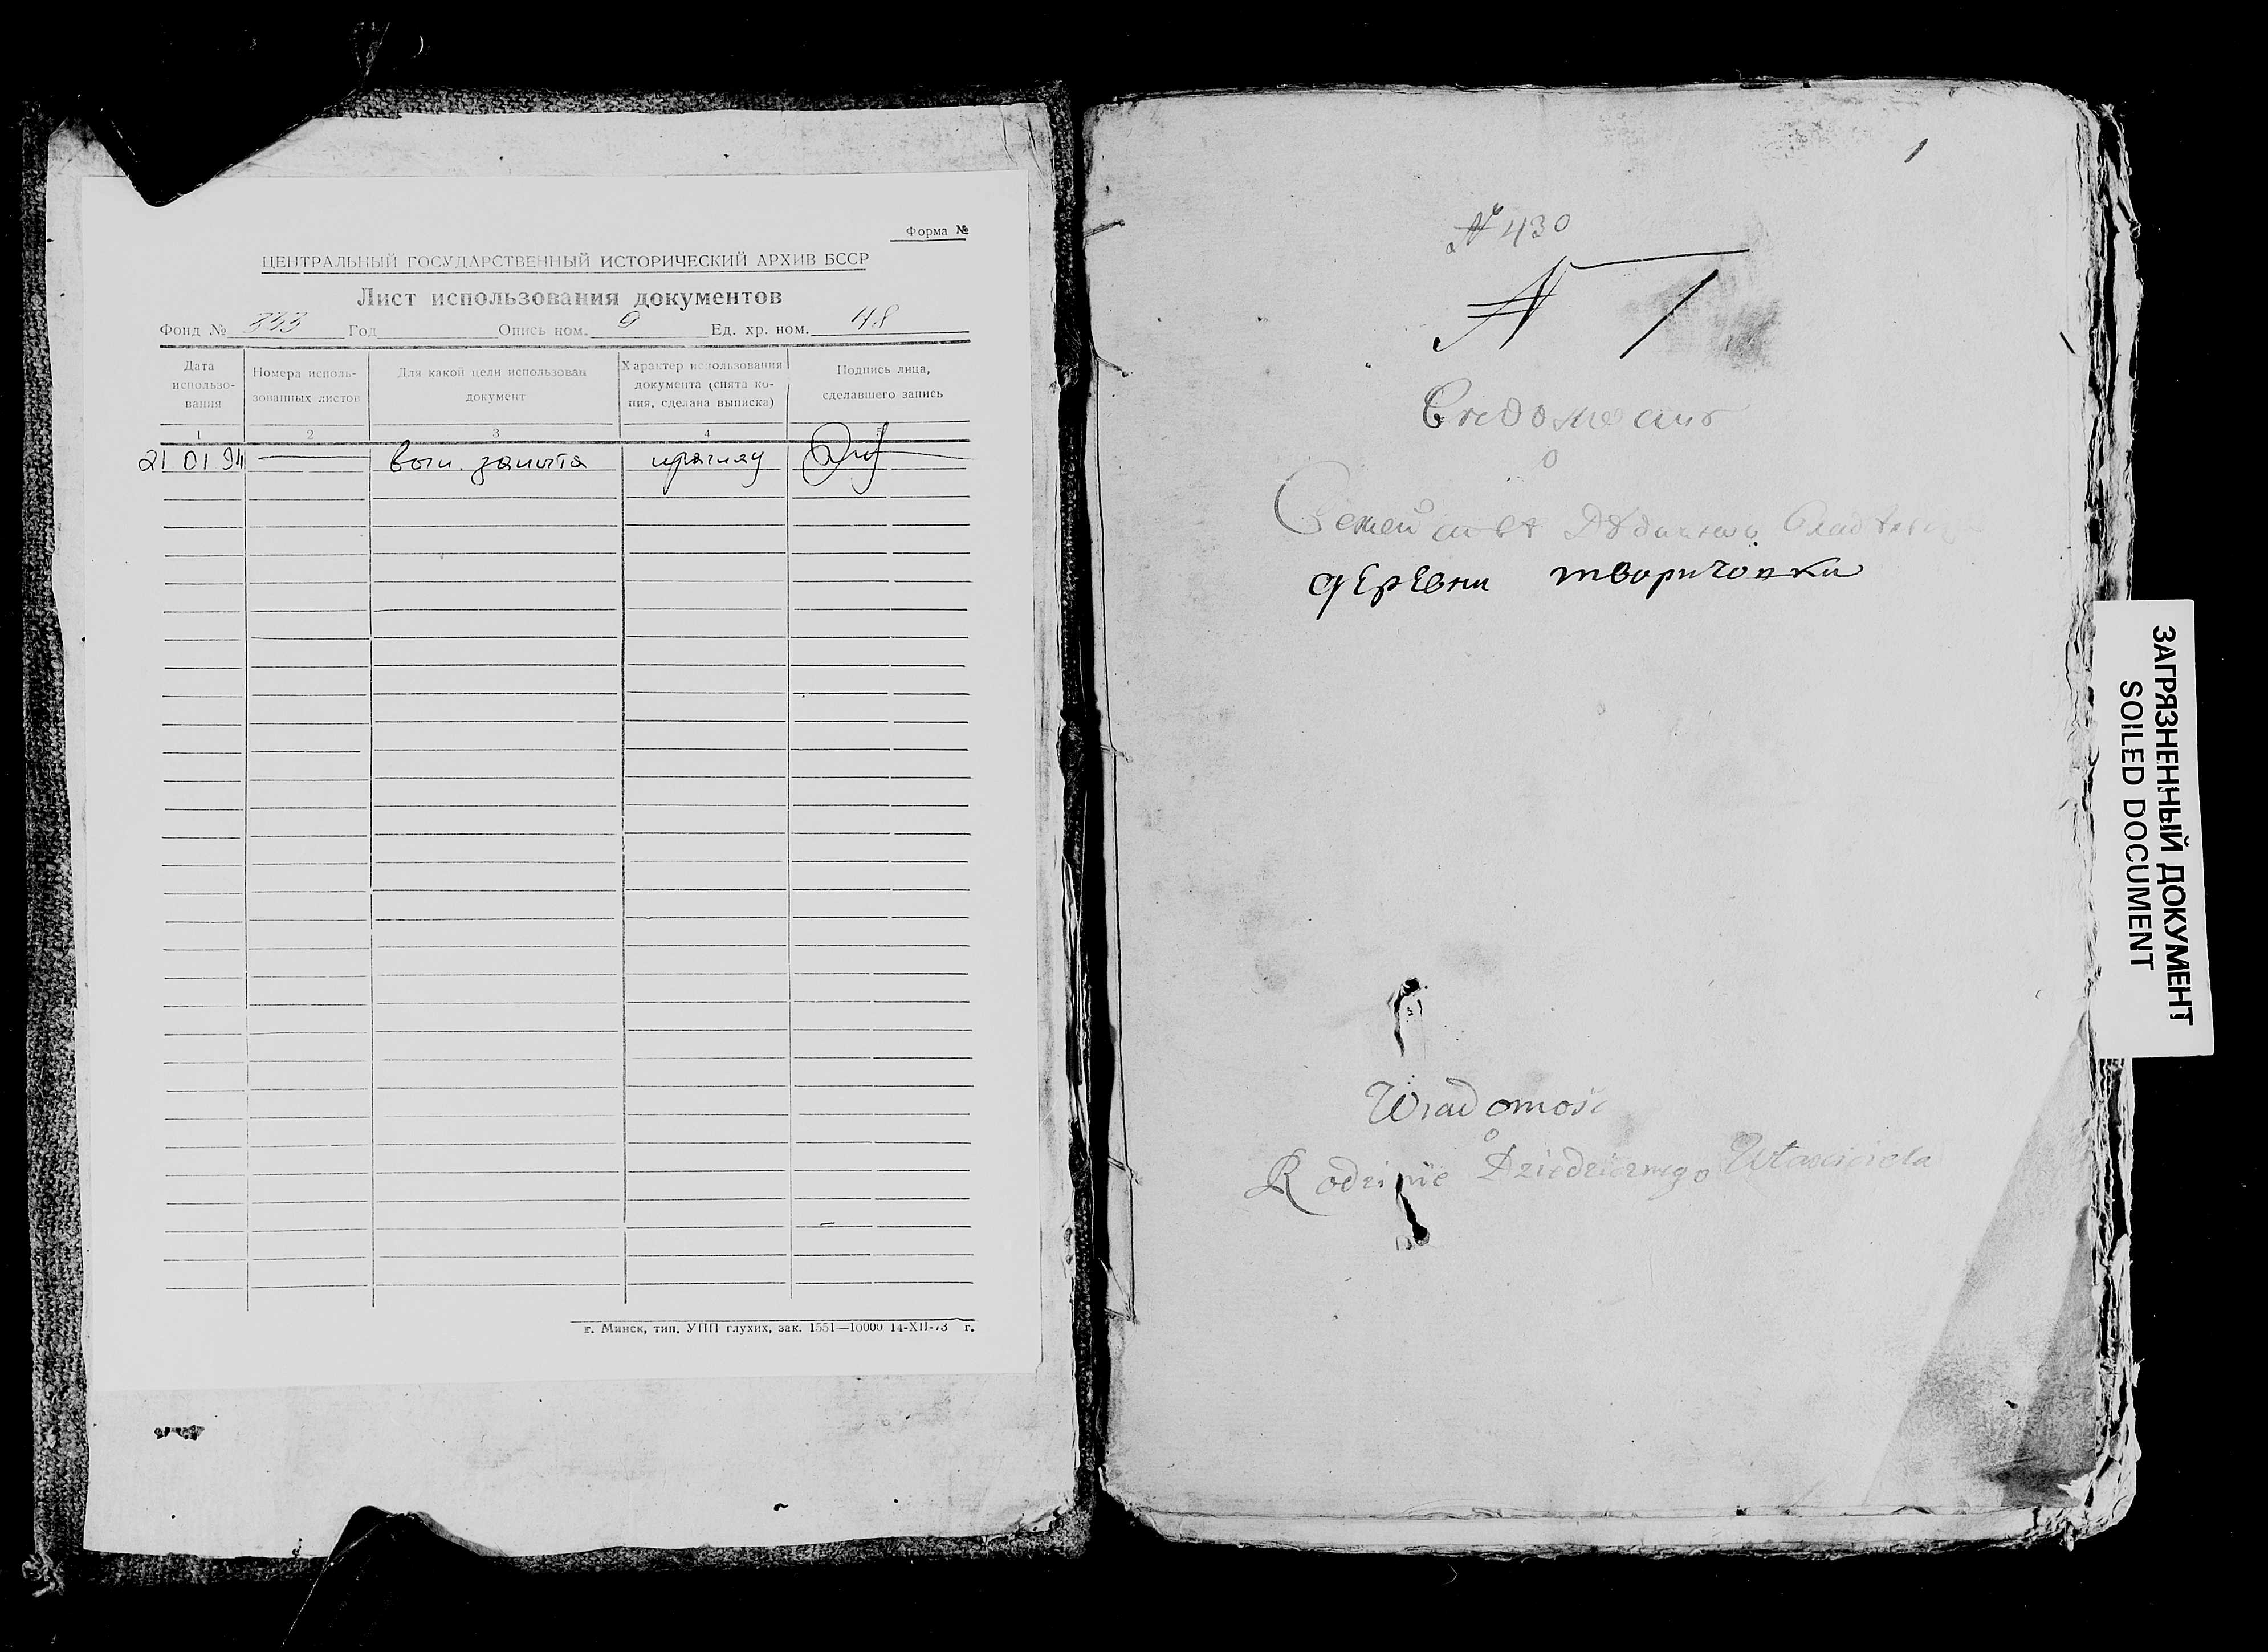 Форма №
ЦЕНТРАЛЬНЫЙ ГОСУДАРСТВЕННЫЙ ИСТОРИЧЕСКИЙ АРХИВ БССР
Лист использования документов
Фонд № 333 Год Опись ном. 9 Ед. хр. ном. 48
Дата использо-вания
Номера исполь-зованных листов
Для какой цели использован документ
Характер использования документа (снята ко-пия, сделана выписка)
Подпись лица, сделавшего запись
1 2 3 4 5
21 01 94 вып. запыта
г. Минск, тип. УПП глухих, зак. 1551—10000 14-XII-73 г.
1
№ 430
№ 1
Ведомость
о
Семействе
деревни
Wiadomość
o
Rodzinie Dziedzicznego Własciciela
ЗАГРЯЗНЕННЫЙ ДОКУМЕНТ
SOILED DOCUMENT